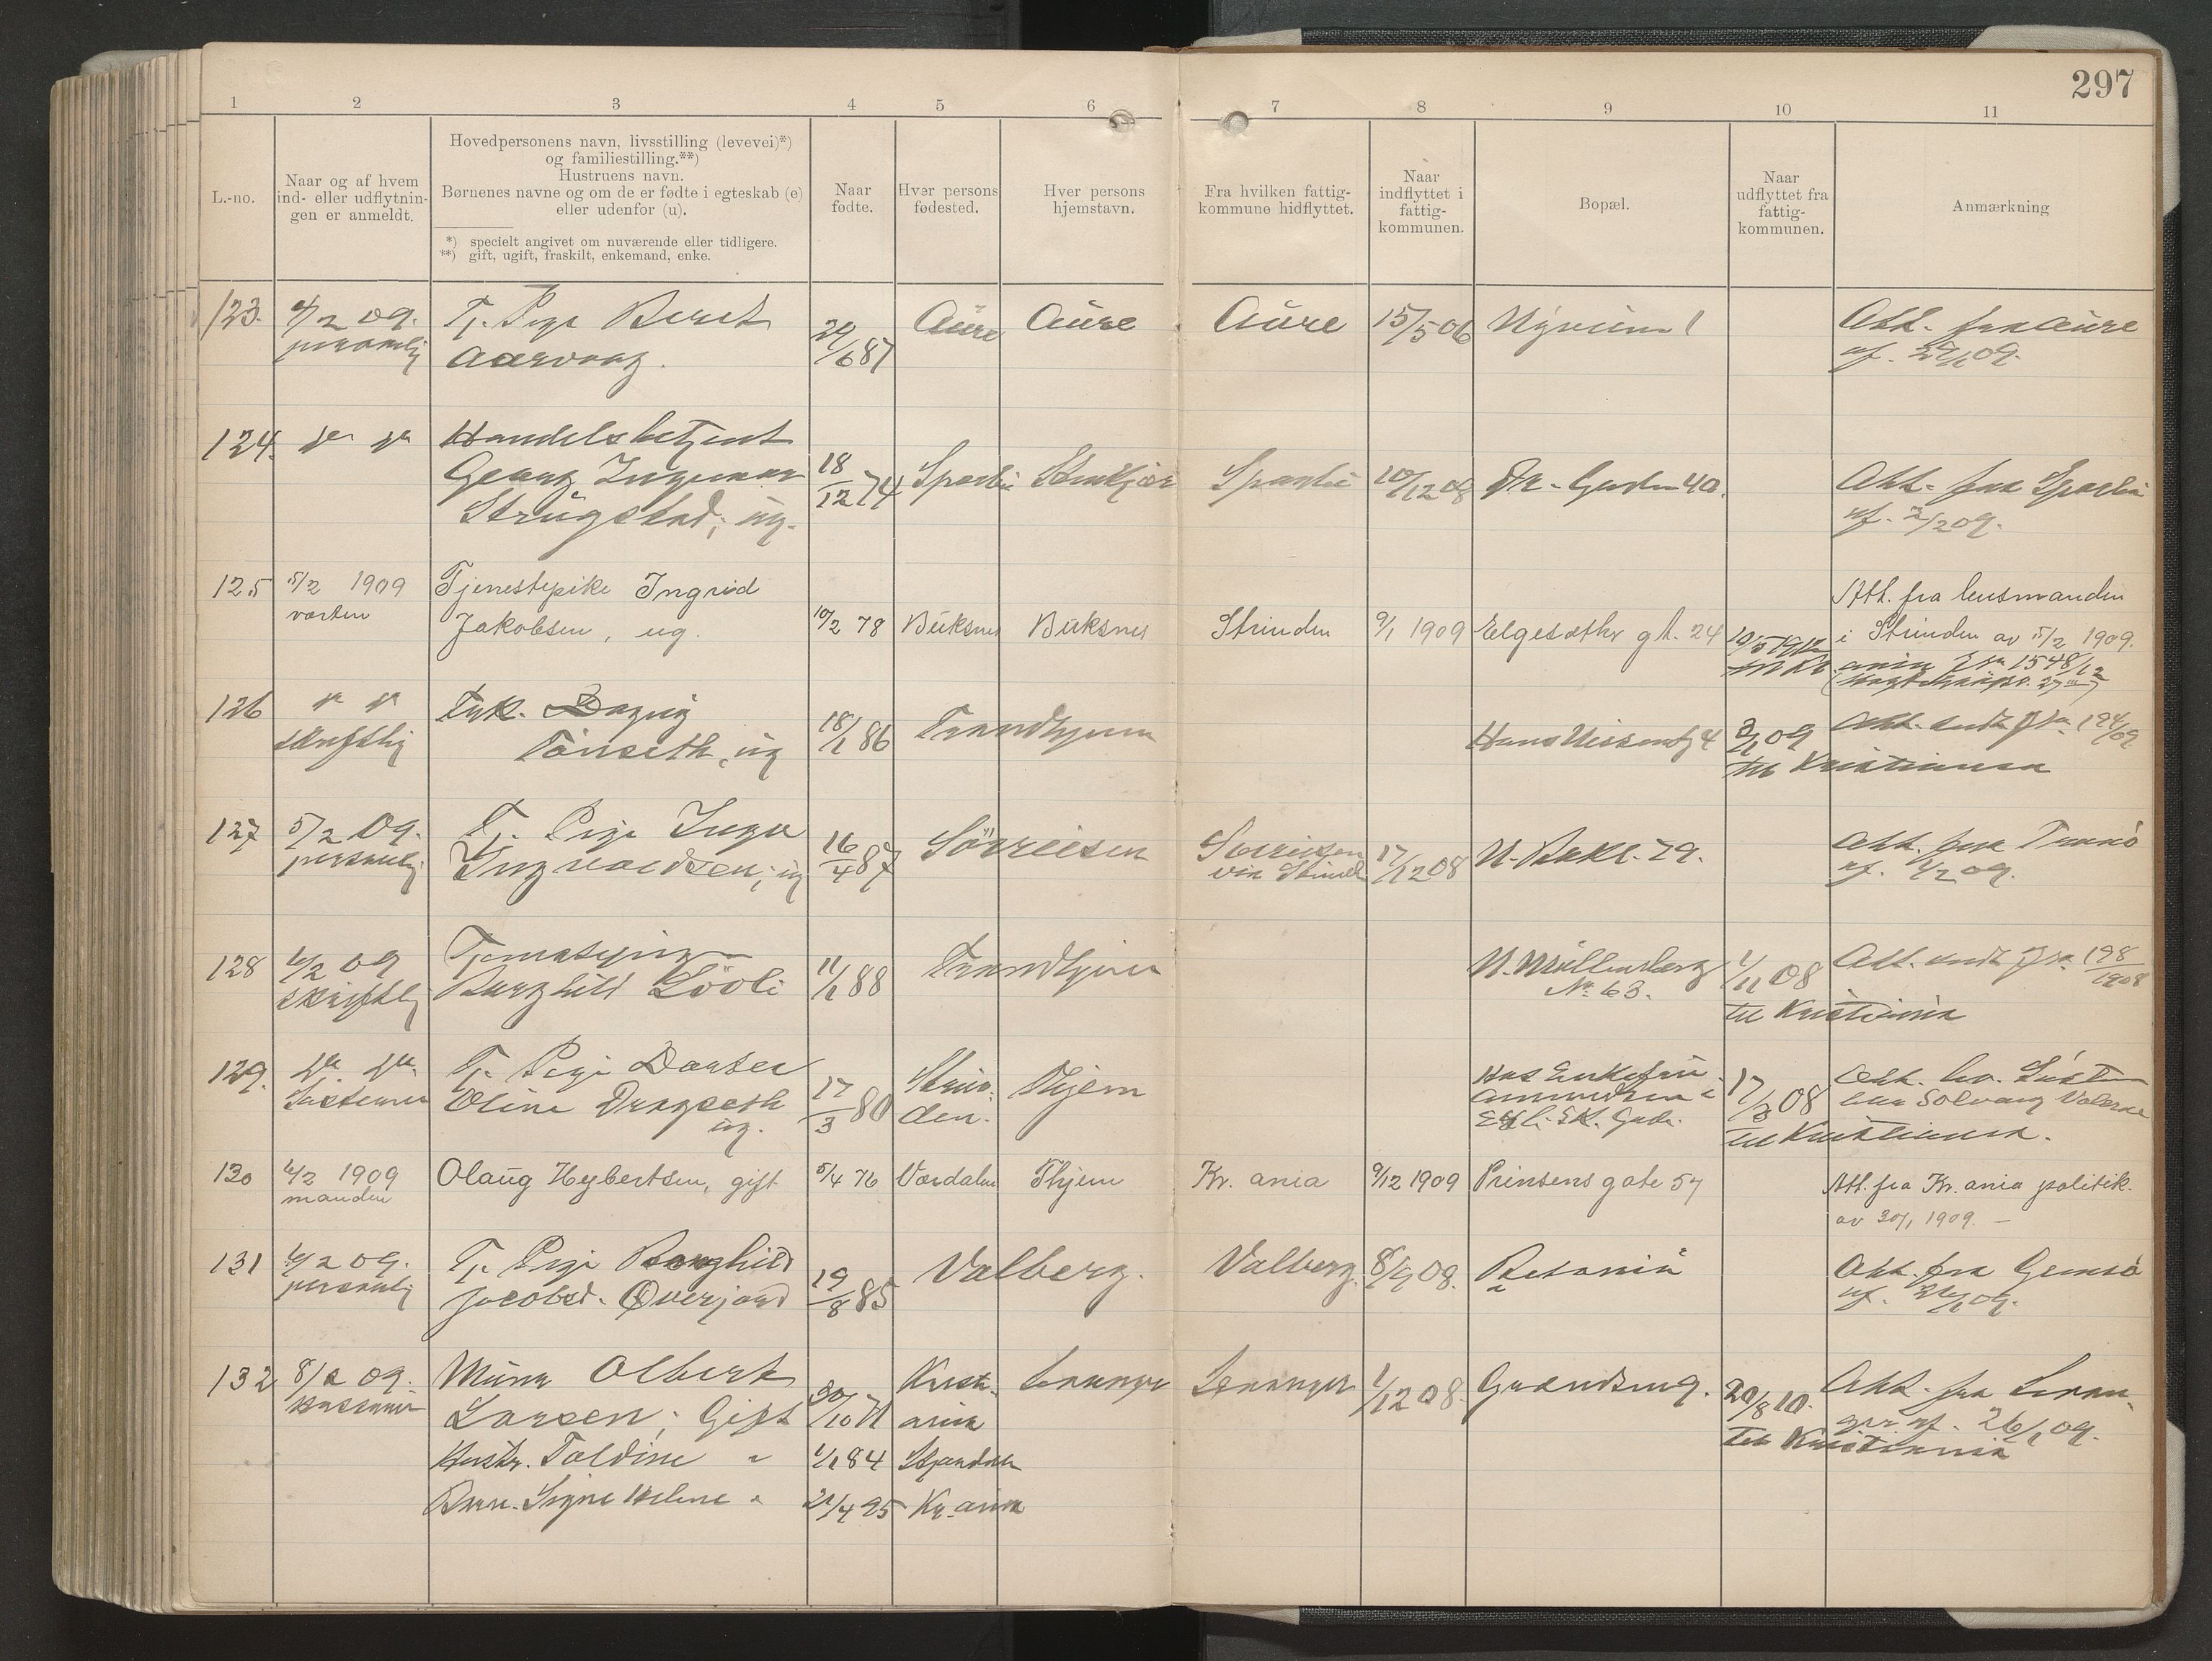 297
1 2 3 4 5 6 7 8 9 10 11
L.-no.
Naar og af hvem
ind- eller udflytnin-
gen er anmeldt.
Hovedpersonens navn, livsstilling (levevei)*)
og familiestilling.**)
Hustruens navn.
Børnenes navne og om de er fødte i egteskab (e)
eller udenfor (u).
*) specielt angivet om nuværende eller tidligere.
**) gift, ugift, fraskilt, enkemand, enke.
Naar
fødte.
Hver persons
fødested.
Hver persons
hjemstavn.
Fra hvilken fattig-
kommune hidflyttet.
Naar
indflyttet i
fattig-
kommunen.
Bopæl.
Naar
udflyttet fra
fattig-
kommunen.
Anmærkning
123. 4/2 09. Tj. Pige Beret Aure Aure Aure 15/5 06 Att. fra Aure
personlig Aarvaag. /6 87 af. /1 09.
124. Handelsbetjent
Georg Ingemar 18/12 74 Sparbu Stenkjær Sparbu /12 08 Gaden 40. Att. fra Sparbu
Strugstad; ug. af. 2/2 09.
125 5/2 1909 Tjenestepike Ingrid Att. fra lensmanden
verten Jakobsen, ug. 10/2 78 Buksnes Buksnes Strinden 9/1 1909 Elgesæther gt. 24 i Strinden av 5/2 1909.
1548/12
126 Dagny
skriftlig Tønseth, ug 18/1 86 Trondhjem Hans Nissensg 4 3/1 09 Att. sendt 194/09.
til Kristiania
127 5/2 09. Tj. Pige Inga Att. fra Tranø
personlig Ingvaldsen; ug 16/4 87 Sørreisen Sørreisen 17/12 08 N. Bakl. 29. af. /2 09.
via Strind
128 6/2 09 Tjenestepige
skriftlig Borghild Løvli 11/1 88 Trondhjem N. Møllenberg 1/11 08 Att. sendt 198/1908
No 63. til Kristiania
129. Tj. Pige Dorthea Strin- Thjem Hos Enkefru 17/3 08
Søsteren Oline Dragseth 17/3 80 den. Amundsen til Kristiania.
ug. Gade.
130 6/2 1909 Olaug Heybertsen, gift 5/4 76 Værdalen Thjem Kr. ania 9/12 1909 Prinsens gate 57 Att. fra Kr. ania politik.
manden av 30/1 1909.
131 6/2 09. Tj. Pige Borghild Valberg. Valberg. 8/9 08. Betania Att. fra Gimsø
personlig Jacobsd. Øverjord 19/8 85 af. /1 09.
132 8/2 09. Murer Albert Kristi- Levanger Levanger 1/12 08 Grændseng. 20/8 10. Att. fra Levan-
Larsen; Gift 30/10 71 ania til Kristiania ger af. 26/1 09.
Hustr. Toldine " 1/1 84 Stjørdalen
Barn. Signe Helene " 21/4 95 Kr. ania